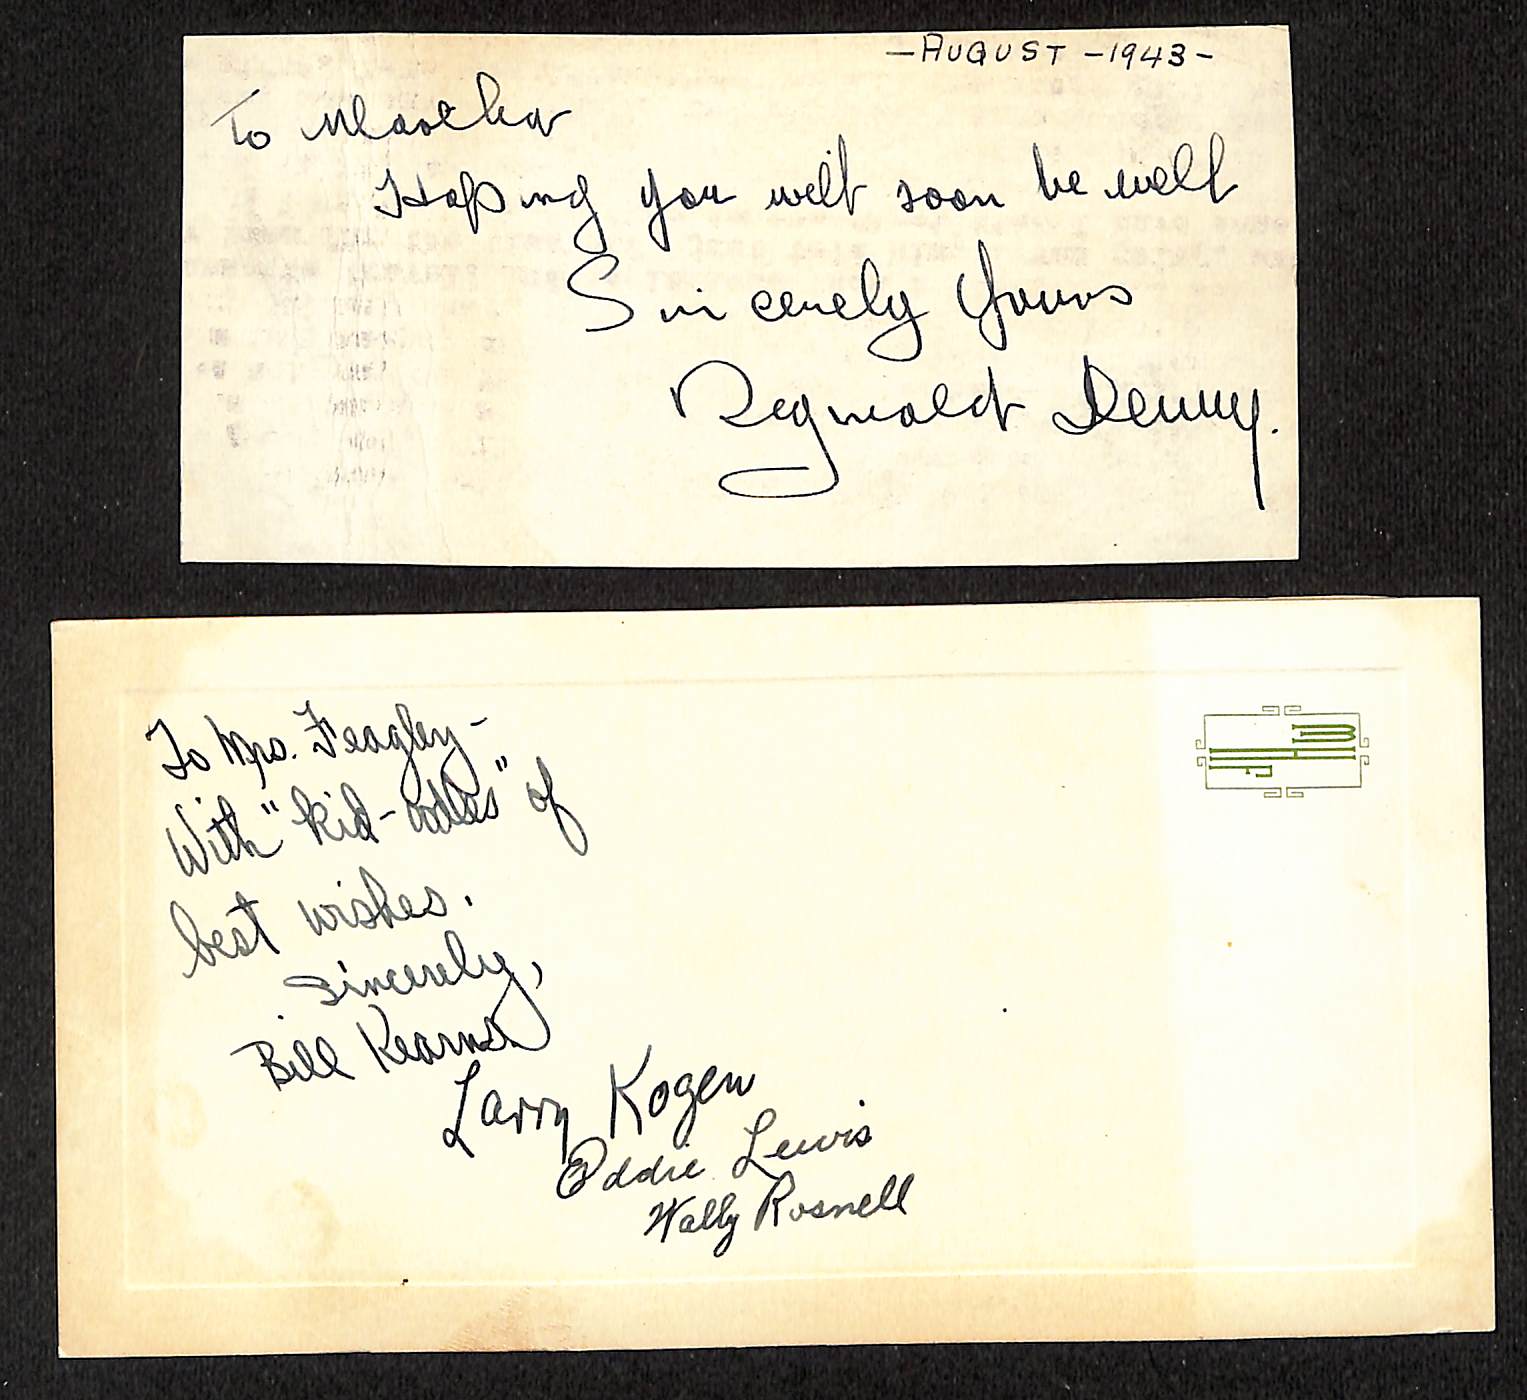 —AUGUST —1943—
To Marcha
Hoping you will soon be well
Sincerely Yours
Reginald Denny.
To Mrs. Feagley—
With "kid-oodles" of
best wishes.
Sincerely,
Bill Kearns
Larry Kogen
Eddie Lewis
Wally Rosnell